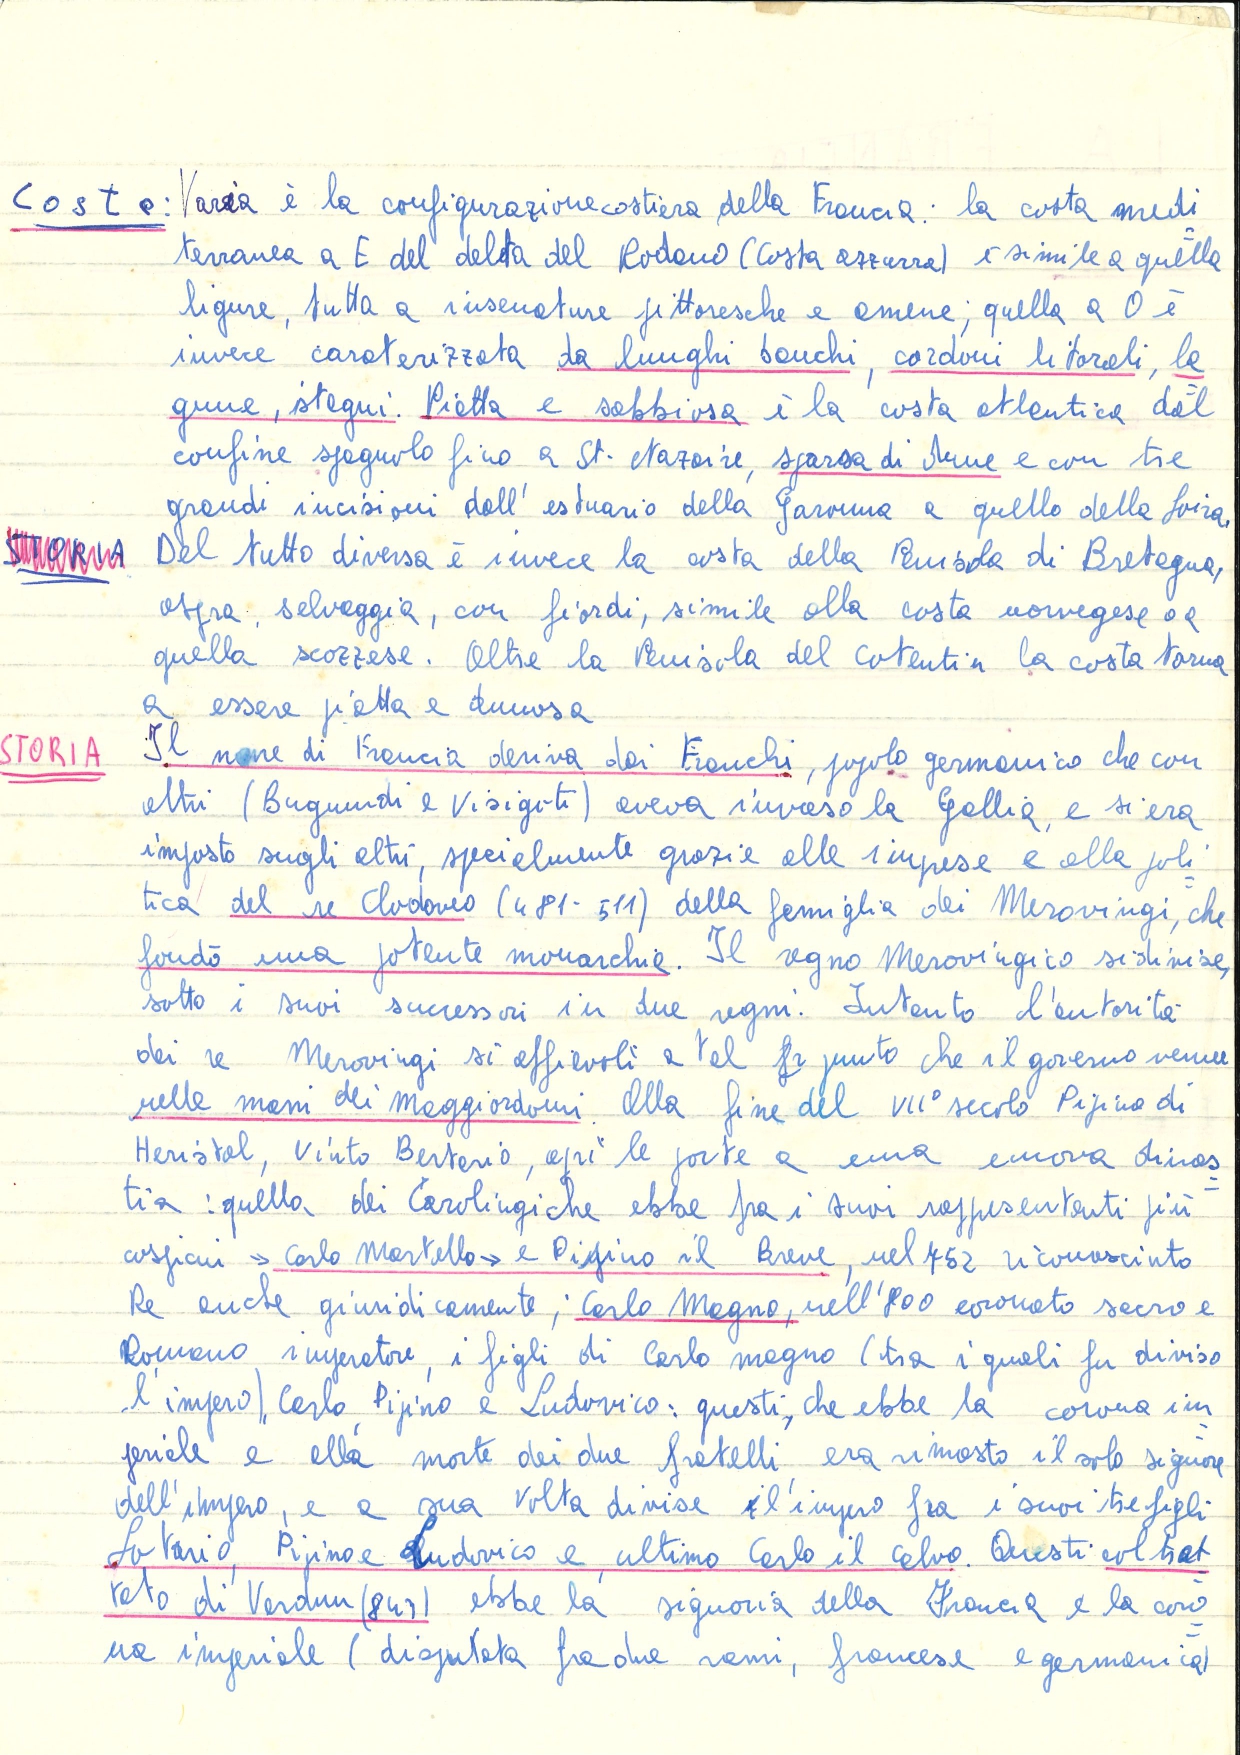 Coste: Varia è la configurazione costiera della Francia: la costa medi
terranea a E del delta del Rodano (Costa azzurra) è simile a quella
ligure, tutta a insenature pittoresche e amene; quella a O è
invece caraterizzata da lunghi banchi, cordoni litorali, la
gune, stagni. Piatta e sabbiosa è la costa atlantica dal
confine spagnolo fino a St. Nazaire, sparsa di dune e con tre
grandi incisioni dall'estuario della Garonna a quello della Loira.
STORIA Del tutto diversa è invece la costa della Penisola di Bretagna,
aspra, selvaggia, con fiordi, simile alla costa norvegese o a
quella scozzese. Oltre la Penisola del Cotentin la costa torna
a essere piatta e dunosa
STORIA Il nome di Francia deriva dai Franchi, popolo germanico che con
altri (Burgundi e Visigoti) aveva invaso la Gallia, e si era
imposto sugli altri, specialmente grazie alle imprese e alla poli
tica del re Clodoveo (481-511) della famiglia dei Merovingi, che
fondò una potente monarchia. Il regno Merovingico si divise,
sotto i suoi successori in due regni. Intanto l'autorità
dei re Merovingi si affievolì a tal punto che il governo venne
nelle mani dei Maggiordomi. Alla fine del VII° secolo Pipino di
Heristal, vinto Bertario, aprì le porte a una nuova dinas
tia: quella dei Carolingi che ebbe fra i suoi rappresentanti più
cospicui → Carlo Martello → e Pipino il Breve, nel 752 riconosciuto
Re anche giuridicamente; Carlo Magno, nell'800 coronato sacro e
Romano imperatore, i figli di Carlo magno (tra i quali fu diviso
l'impero), Carlo, Pipino e Ludovico: questi, che ebbe la corona im
periale e alla morte dei due fratelli era rimasto il solo signore
dell'impero, e a sua volta divise l'impero fra i suoi tre figli
Lotario, Pipino e Ludovico e, ultimo Carlo il calvo. Questi col trat
tato di Verdun (843) ebbe la signoria della Francia e la coro
na imperiale (disputata fra due rami, francese e germanica)